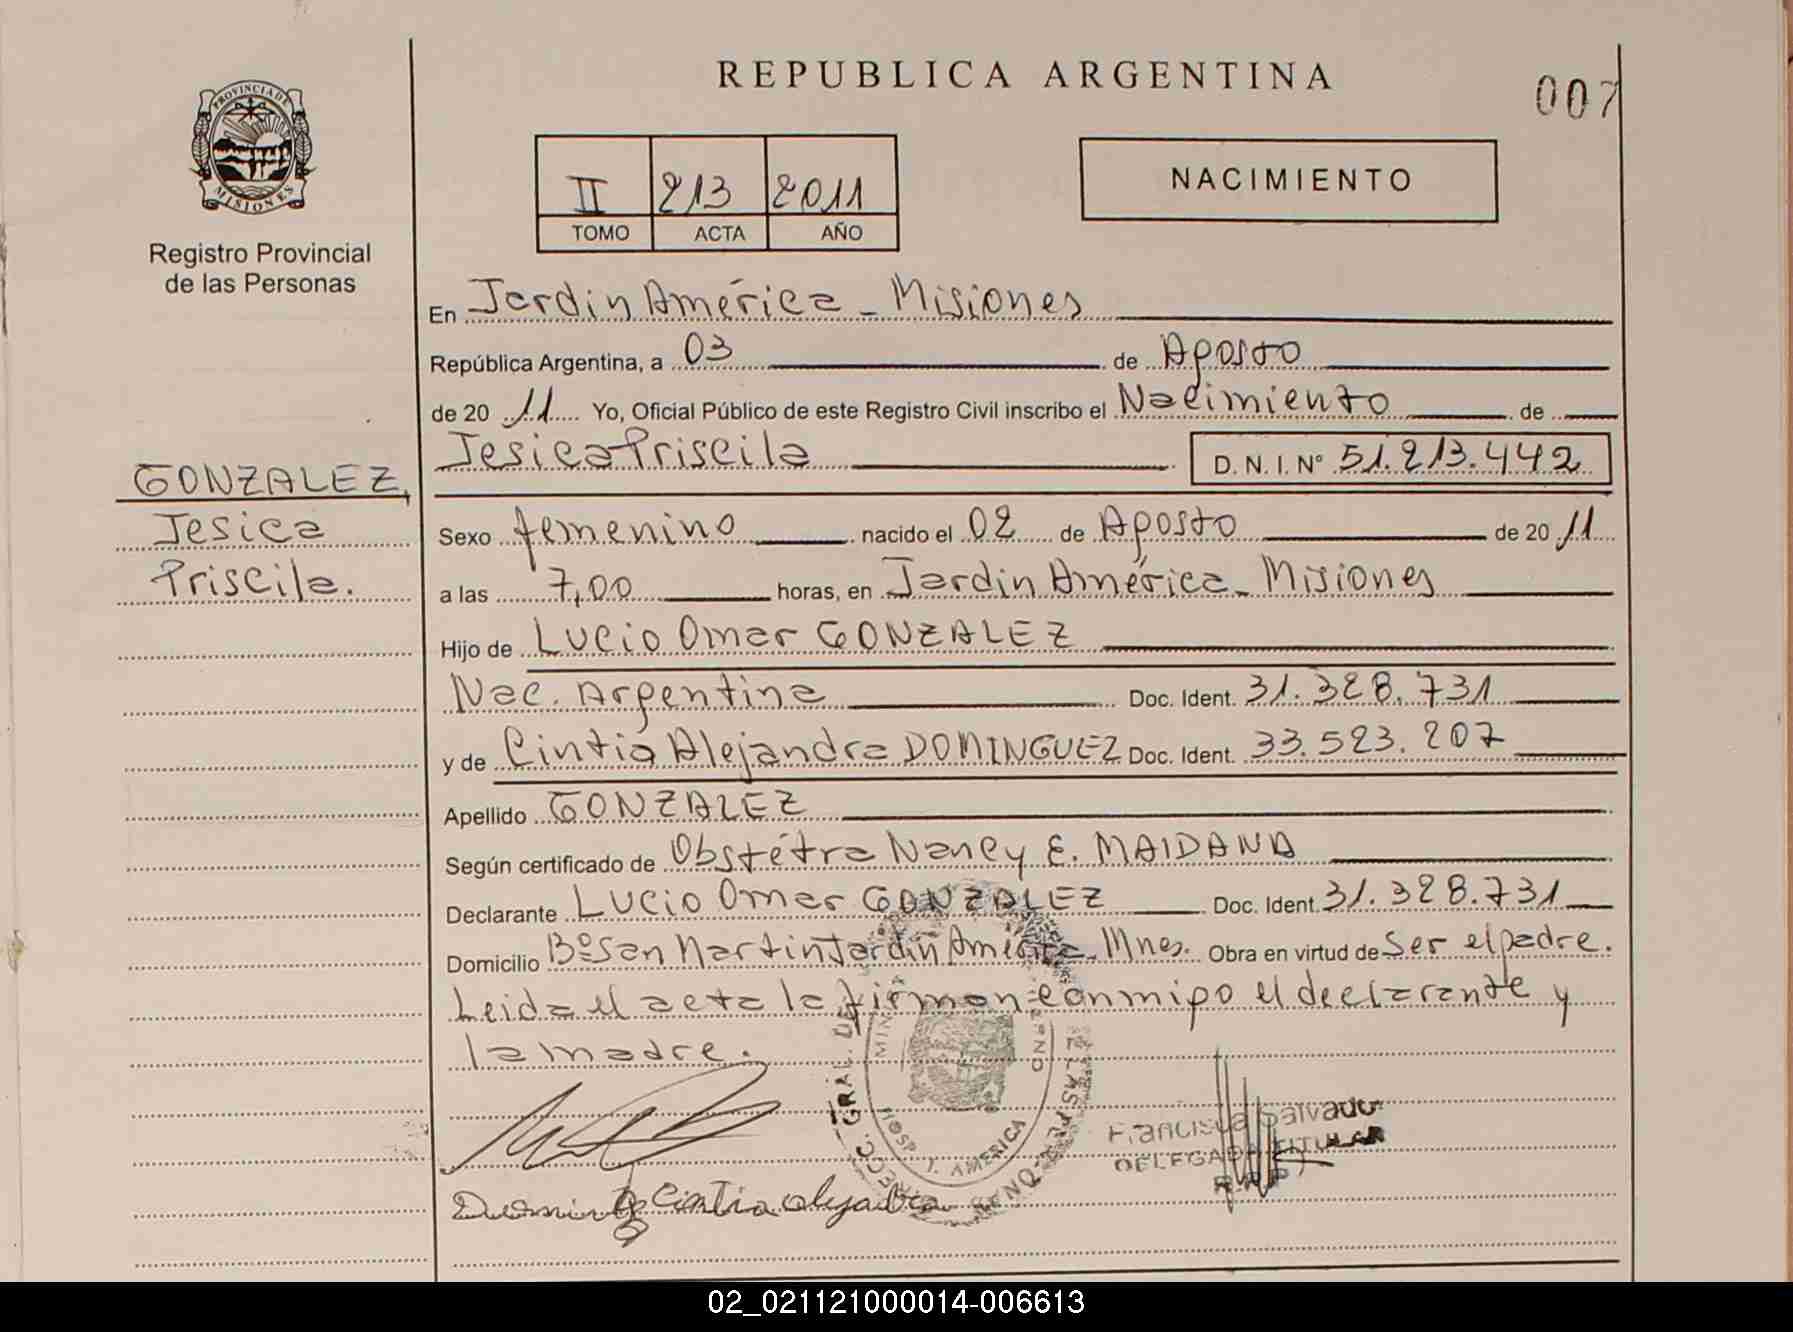 REPUBLICA ARGENTINA
007
PROVINCIA DE
MISIONES
Registro Provincial
de las Personas
II 213 2011
TOMO ACTA AÑO
NACIMIENTO
En Jardin América - Misiones
República Argentina, a 03 de Agosto
de 20 11 Yo, Oficial Público de este Registro Civil inscribo el Nacimiento de
Jesica Priscila D.N.I. Nº 51.213.442
GONZALEZ,
Jesica
Priscila.
Sexo femenino nacido el 02 de Agosto de 20 11
a las 7,00 horas, en Jardin América - Misiones
Hijo de Lucio Omar GONZALEZ
Nac. Argentina Doc. Ident. 31.328.731
y de Cintia Alejandra DOMINGUEZ Doc. Ident. 33.523.207
Apellido GONZALEZ
Según certificado de Obstétra Nancy E. MAIDANA
Declarante Lucio Omar GONZALEZ Doc. Ident. 31.328.731
Domicilio Bº San Martin Jardin América - Mnes. Obra en virtud de Ser el padre.
Leida el acta la firman conmigo el declarante y
la madre.
HOSP. J. AMERICA
Francisca Salvado
DELEGADA TITULAR
R.P.P.
Cintia alejadra
02_021121000014-006613